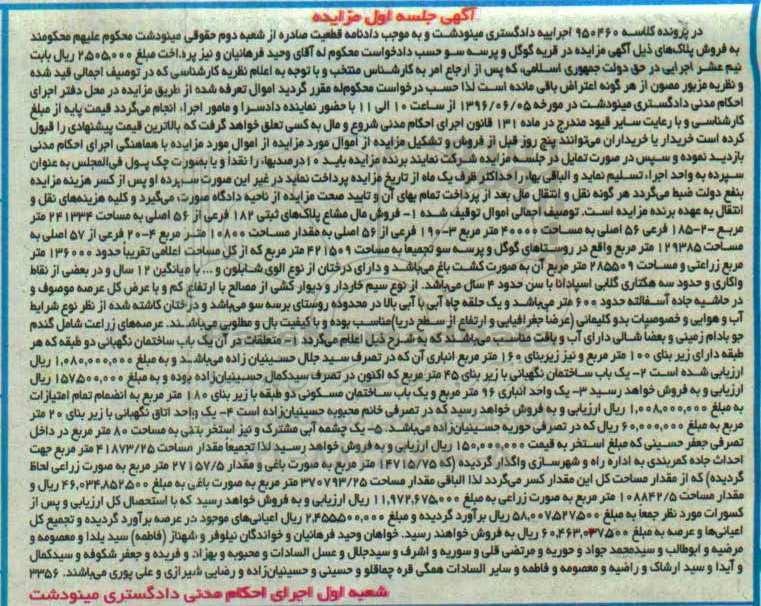 آگهی جلسه اول مزایده
در پرونده کلاسه ۹۵۰۴۶۰ اجراییه دادگستری مینودشت و به موجب دادنامه قطعیت صادره از شعبه دوم حقوقی مینودشت محکوم علیهم محکومند
به فروش پلاک‌های ذیل آگهی مزایده در قریه گوگل و پرسه سو حسب دادخواست محکوم له آقای وحید فرهانیان و نیز پرداخت مبلغ ۲,۵۰۵,۰۰۰ ریال بابت
نیم عشر اجرایی در حق دولت جمهوری اسلامی، که پس از ارجاع امر به کارشناس منتخب و با توجه به اعلام نظریه کارشناسی که در توصیف اجمالی قید شده
و نظریه مزبور مصون از هر گونه اعتراض باقی مانده است لذا حسب درخواست محکوم‌له مقرر گردید اموال تعرفه شده از طریق مزایده در محل دفتر اجرای
احکام مدنی دادگستری مینودشت در مورخه ۱۳۹۶/۰۶/۰۵ از ساعت ۱۰ الی ۱۱ با حضور نماینده دادسرا و مامور اجرا، انجام می‌گردد قیمت پایه از مبلغ
کارشناسی و با رعایت سایر قیود مندرج در ماده ۱۳۱ قانون اجرای احکام مدنی شروع و مال به کسی تعلق خواهد گرفت که بالاترین قیمت پیشنهادی را قبول
کرده است خریدار یا خریداران می‌توانند پنج روز قبل از فروش و تشکیل مزایده از اموال مورد مزایده از اموال مورد مزایده با هماهنگی اجرای احکام مدنی
بازدید نموده و سپس در صورت تمایل در جلسه مزایده شرکت نمایند برنده مزایده باید ۱۰ درصد بهاء را نقدا و یا بصورت چک پول فی‌المجلس به عنوان
سپرده به واحد اجراء تسلیم نماید و الباقی بهاء را حداکثر ظرف یک ماه از تاریخ مزایده پرداخت نماید در غیر این صورت سپرده او پس از کسر هزینه مزایده
بنفع دولت ضبط می‌گردد هر گونه نقل و انتقال مال بعد از پرداخت تمام بهای آن و تایید صحت مزایده از ناحیه دادگاه صورت می‌گیرد و کلیه هزینه‌های نقل و
انتقال به عهده برنده مزایده است. توصیف اجمالی اموال توقیف شده ۱- فروش مال مشاع پلاک‌های ثبتی ۱۸۲ فرعی از ۵۶ اصلی به مساحت ۲۴۱۳۳۴ متر
مربع -۲-۱۸۵ فرعی ۵۶ اصلی به مساحت ۴۰۰۰۰ متر مربع ۳-۱۹۰ فرعی از ۵۶ اصلی به مقدار مساحت ۱۰۸۰۰ متر مربع ۴-۲۰ فرعی از ۵۷ اصلی به
مساحت ۱۲۹۳۸۵ متر مربع واقع در روستاهای گوگل و پرسه سو تجمیعا به مساحت ۴۲۱۵۰۹ متر مربع که از کل مساحت اعلامی تقریبا حدود ۱۳۶۰۰۰ متر
مربع زراعتی و مساحت ۲۸۵۵۰۹ متر مربع آن به صورت کشت باغ می‌باشد و دارای درختان از نوع الوی شابلون و ... با میانگین ۱۲ سال و در بعضی از نقاط
واکاری و حدود سه هکتاری گلابی اسپادانا با سن حدود ۴ سال می‌باشد. از نوع سیم خاردار و دیوار کشی از مصالح با ارتفاع کم و با عرض کل عرصه موصوف و
در حاشیه جاده آسفالته حدود ۶۰۰ متر می‌باشد و یک حلقه چاه آبی با آبی بالا در محدوده روستای پرسه سو می‌باشد و درختان کاشته شده از نظر نوع شرایط
آب و هوایی و خصوصیات بدو کلیماتی (عرضا جغرافیایی و ارتفاع از سطح دریا) مناسب بوده و با کیفیت بال و مطلوبی می‌باشند. عرصه‌های زراعت شامل گندم
جو بادام زمینی و بعضا شالی دارای آب و بافت مناسب می‌باشند که به شرح ذیل اعلام می‌گردد ۱- متعلقات در آن یک باب ساختمان نگهبانی دو طبقه که هر
طبقه دارای زیر بنای ۱۰۰ متر مربع و نیز زیربنای ۱۶۰ متر مربع انباری آن که در تصرف سید جلال حسینیان زاده می‌باشد و به مبلغ ۱,۰۸۰,۰۰۰,۰۰۰ ریال
ارزیابی شده است ۲- یک باب ساختمان نگهبانی با زیر بنای ۴۵ متر مربع که اکنون در تصرف سیدکمال حسینیان‌زاده بوده و به مبلغ ۱۵۷,۵۰۰,۰۰۰ ریال
ارزیابی و به فروش خواهد رسید ۳- یک واحد انباری ۹۶ متر مربع و یک باب ساختمان مسکونی دو طبقه با زیر بنای ۱۸۰ متر مربع به انضمام تمام امتیازات
به مبلغ ۱,۰۰۸,۰۰۰,۰۰۰ ریال ارزیابی و به فروش خواهد رسید که در تصرفی خانم محبوبه حسینیان‌زاده است ۴- یک واحد اتاق نگهبانی با زیر بنای ۲۰ متر
مربع به مبلغ ۶۰,۰۰۰,۰۰۰ ریال که در تصرفی حوریه حسینیان‌زاده می‌باشد. ۵- یک چشمه آبی مشترک و نیز استخر بتنی به مساحت ۸۰ متر مربع در داخل
تصرفی جعفر حسینی که مبلغ استخر به قیمت ۱۵۰,۰۰۰,۰۰۰ ریال ارزیابی و به فروش خواهد رسید لذا تجمیعا مقدار مساحت ۴۱۸۷۳/۲۵ متر مربع جهت
احداث جاده کمربندی به اداره راه و شهرسازی واگذار گردیده (که ۱۴۷۱۵/۷۵ متر مربع به صورت باغی و مقدار ۲۷۱۵۷/۵ متر مربع به صورت زراعی لحاظ
گردیده) که از مقدار مساحت کل این مقدار کسر می‌گردد لذا الباقی مقدار مساحت ۳۷۰۷۹۳/۲۵ متر مربع به صورت باغی به مبلغ ۴۶,۰۳۴,۸۵۲,۵۰۰ ریال و
مقدار مساحت ۱۰۸۸۴۲/۵ متر مربع به صورت زراعی به مبلغ ۱۱,۹۷۲,۶۷۵,۰۰۰ ریال ارزیابی و به فروش خواهد رسید که با استحصال کل ارزیابی و پس از
کسورات مورد نظر جمعا به مبلغ ۵۸,۰۰۷,۵۲۷,۵۰۰ ریال برآورد گردیده و مبلغ ۲,۴۵۵,۵۰۰,۰۰۰ ریال اعیانی‌های موجود در عرصه برآورد گردیده و تجمیع کل
اعیانی‌ها و عرصه به مبلغ ۶۰,۴۶۳,۰۳۷,۵۰۰ ریال به فروش خواهند رسید. خواهان وحید فرهانیان و خواندگان نیلوفر و شهناز (فاطمه) سید یلدا و معصومه و
مرضیه و ابوطالب و سیدمحمد جواد و حوریه و مرتضی قلی و سوریه و اشرف و سیدجلال و عسل السادات و محبوبه و بهزاد و فریده و جعفر شکوفه و سیدکمال
و آیدا و سید ارشاک و راضیه و معصومه و فاطمه و سایر السادات همگی قره چماقلو و حسینی و حسینیان‌زاده و رضایی شیرازی و علی پوری می‌باشند. ۳۳۵۶
شعبه اول اجرای احکام مدنی دادگستری مینودشت